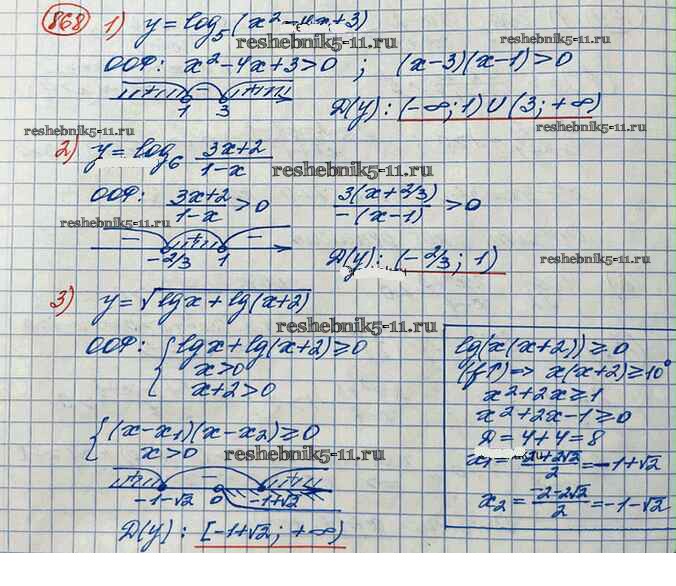 868 1) y = log₅(x² - 4x + 3)
reshebnik5-11.ru
ООФ: x² - 4x + 3 > 0 ; (x-3)(x-1) > 0
+ - +
1 3
Д(y): (-∞; 1) ∪ (3; +∞)
reshebnik5-11.ru
reshebnik5-11.ru
2) y = log₆ (3x+2)/(1-x)
reshebnik5-11.ru
ООФ: (3x+2)/(1-x) > 0 3(x+2/3)/(-(x-1)) > 0
reshebnik5-11.ru
- + -
-2/3 1
Д(y): (-2/3; 1)
reshebnik5-11.ru
3) y = √(lgx + lg(x+2))
reshebnik5-11.ru
ООФ: { lgx + lg(x+2) ≥ 0
x > 0
x+2 > 0
{ (x-x₁)(x-x₂) ≥ 0
x > 0
reshebnik5-11.ru
+ - +
-1-√2 0 -1+√2
Д(y): [-1+√2; +∞)
reshebnik5-11.ru
lg(x(x+2)) ≥ 0
(f↑) => x(x+2) ≥ 10⁰
x² + 2x ≥ 1
x² + 2x - 1 ≥ 0
Д = 4 + 4 = 8
x₁ = (-2+2√2)/2 = -1+√2
x₂ = (-2-2√2)/2 = -1-√2